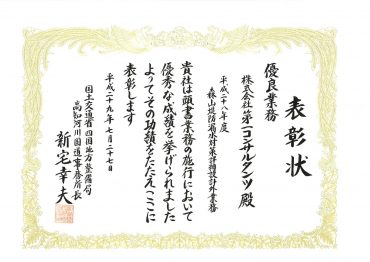 表彰状
優良業務
株式会社第一コンサルタンツ殿
平成二十八年度
森山堤防漏水対策詳細設計外業務
貴社は頭書業務の施行において
優秀な成績を挙げられました
よってその功績をたたえここに
表彰します
平成二十九年七月二十七日
国土交通省四国地方整備局
高知河川国道事務所長
新宅幸夫